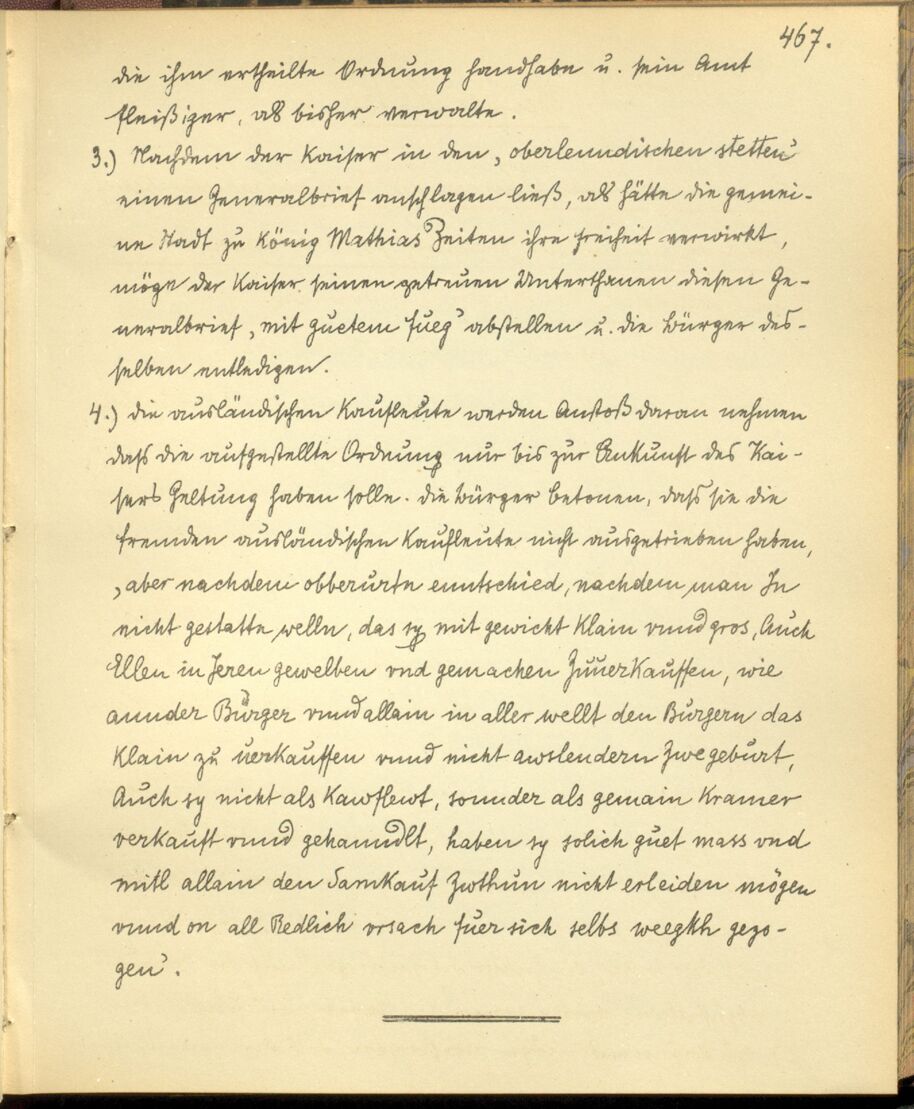 467.
die ihm ertheilte Ordnung handhabe u. sein Amt
fleißiger, als bisher verwalte.
3.) Nachdem der Kaiser in den ‚oberlenndischen stetten‘
einen Generalbrief anschlagen ließ, als hätte die gemei-
ne Stadt zu König Mathias Zeiten ihre Freiheit verwirkt,
möge der Kaiser seinen getreuen Unterthanen diesen Ge-
neralbrief ‚mit guetem fueg‘ abstellen u. die Bürger des-
selben entledigen.
4.) die ausländischen Kaufleute werden Anstoß daran nehmen
dass die aufgestellte Ordnung nur bis zur Ankunft des Kai-
sers Geltung haben solle. die Bürger betonen, dass sie die
fremden ausländischen Kaufleute nicht ausgetrieben haben,
‚aber nachdem obberurte enntschied, nachdem man In
nicht gestatte welln, das sy mit gewicht Klain vnnd gros, Auch
Ellen in Jeren gewelben vnd gemachen Zuuerkauffen, wie
annder Bürger vnnd allain in aller wellt den Burgern das
Klain zu uerkauffen vnnd nicht awslendern Zwegeburt,
Auch sy nicht als Kawflewt, sonnder als gemain Kramer
verkauft vnnd gehanndlt, haben sy solich guet mass vnd
mitl allain den Samkauf Zwthun nicht erleiden mögen
vnnd on all Redlich vrsach fuer sich selbs weegkh gezo-
gen‘.